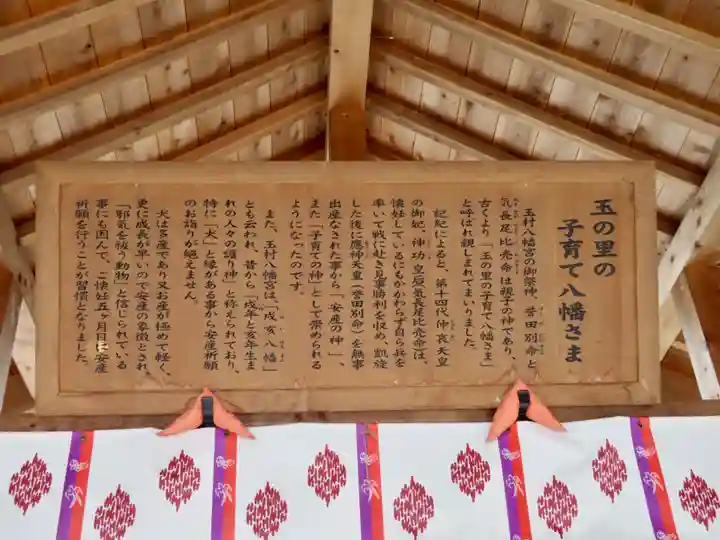 玉の里の
子育て八幡さま
玉村八幡宮の御祭神、誉田別命と
気長足比売命は親子の神であり、
古くより「玉の里の子育て八幡さま」
と呼ばれ親しまれてまいりました。
記紀によると、第十四代仲哀天皇
の御妃、神功皇后気長足比売命は、
懐妊しているにもかかわらず自ら兵を
率いて戦に赴き見事勝利を収め、凱旋
した後に應神天皇（誉田別命）を無事
出産なされた事から「安産の神」、
また「子育ての神」として崇められる
ようになったのです。
また、玉村八幡宮は、「戌亥八幡」
とも云われ、昔から「戌年と亥年生ま
れの人々の護り神」と称えられており、
特に「犬」と縁がある事から安産祈願
のお詣りが絶えません。
犬は多産であり又お産が極めて軽く、
更に成長が早いので安産の象徴とされ、
「邪気を祓う動物」と信じられている
事にも因んで、ご懐妊五ヶ月目に安産
祈願を行うことが習慣となりました。